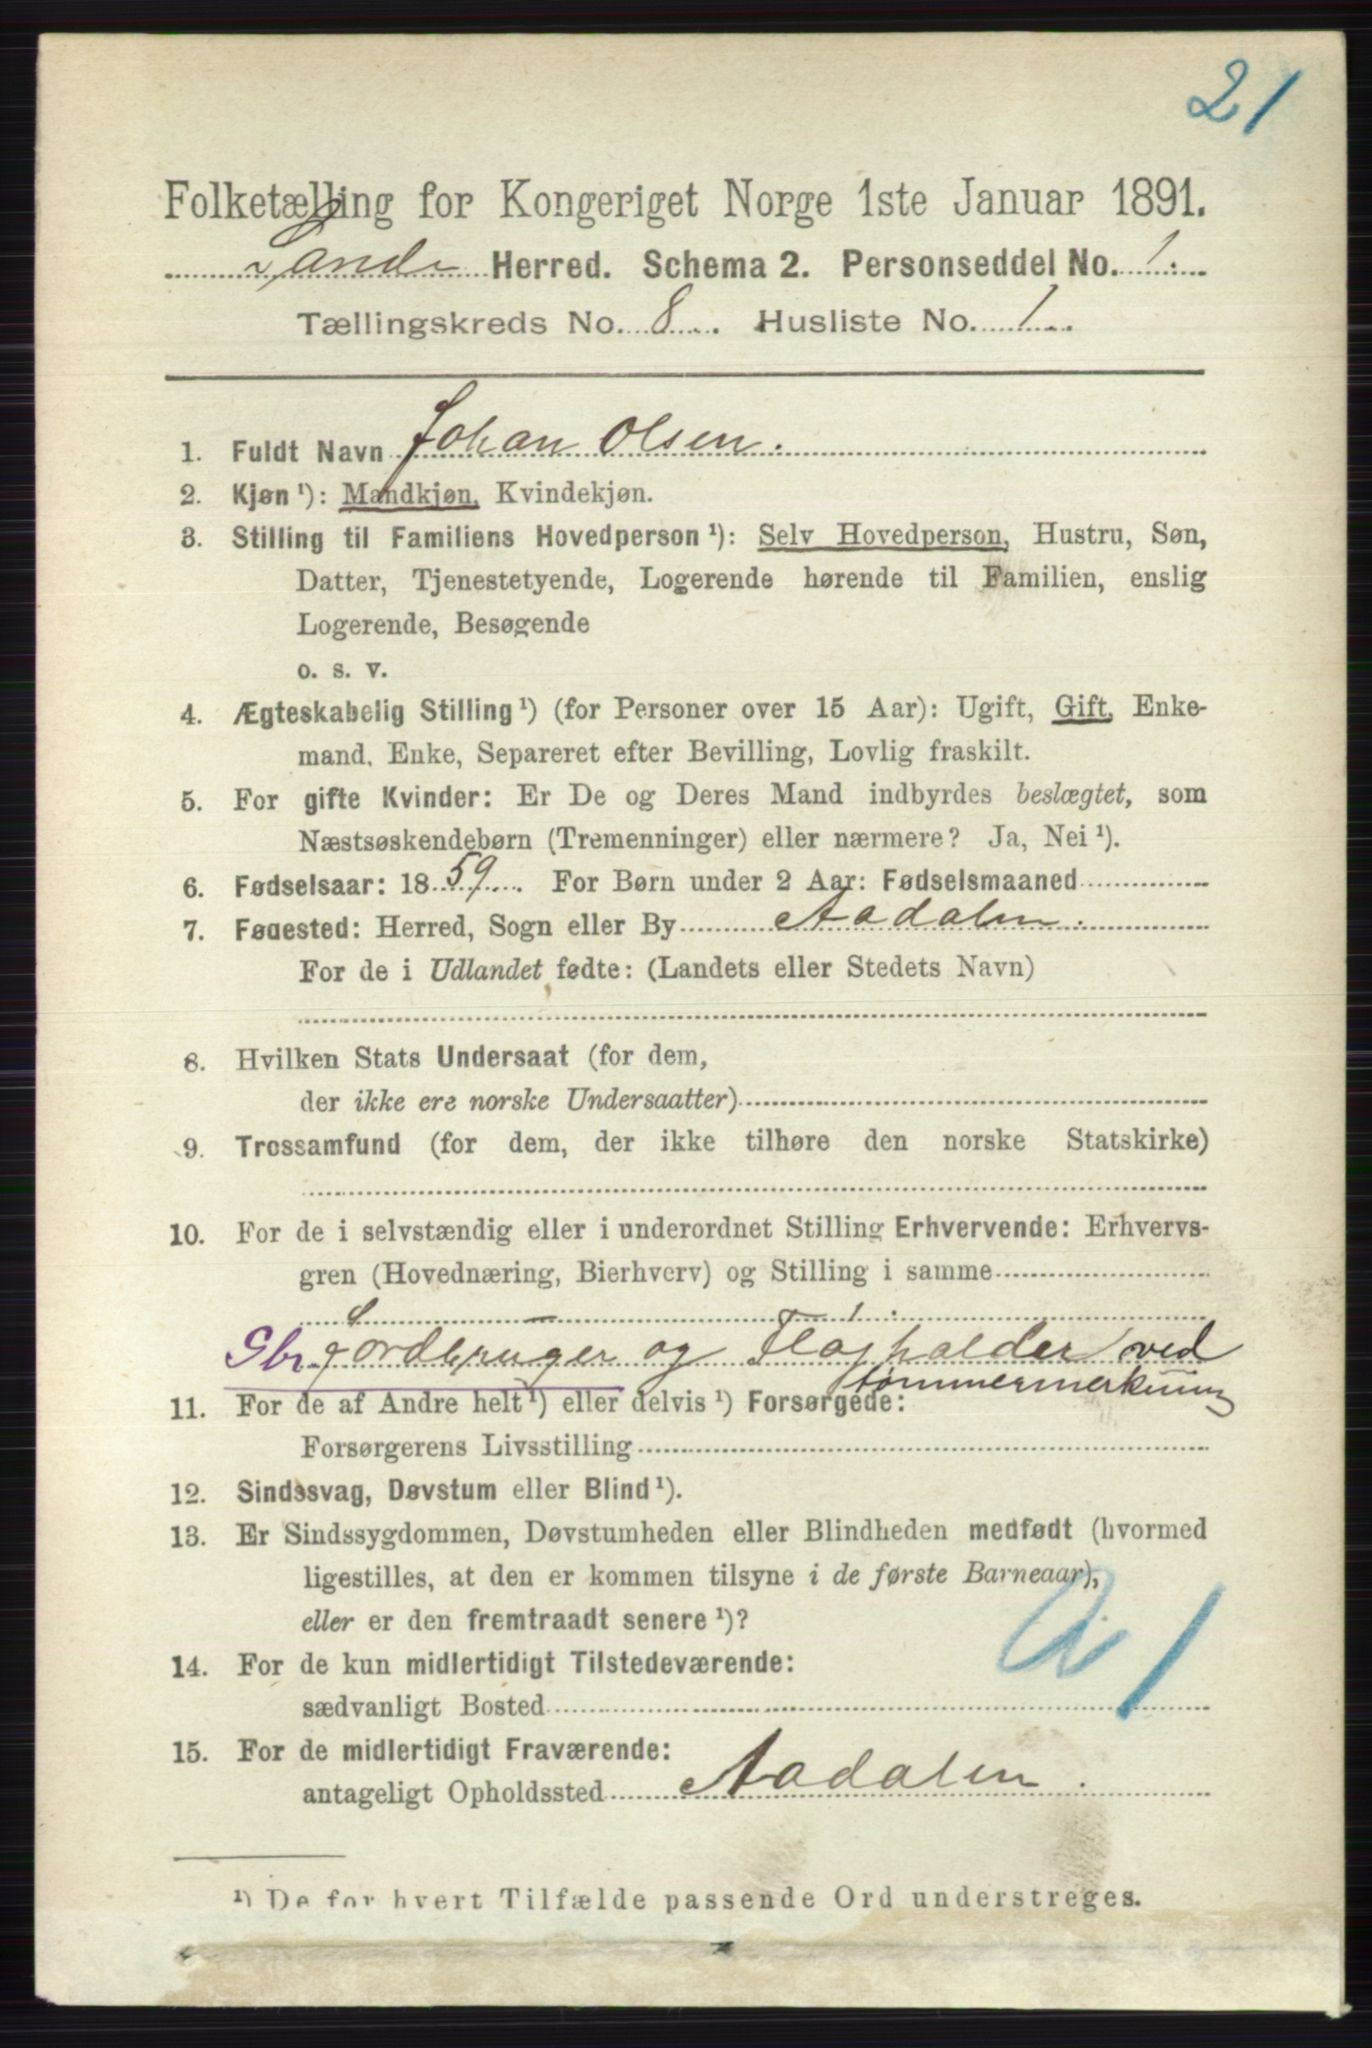 21
Folketælling for Kongeriget Norge 1ste Januar 1891.
Sande Herred. Schema 2. Personseddel No. 1.
Tællingskreds No. 8. Husliste No. 1.
1. Fuldt Navn Johan Olsen.
2. Kjøn ¹): Mandkjøn, Kvindekjøn.
3. Stilling til Familiens Hovedperson ¹): Selv Hovedperson, Hustru, Søn,
Datter, Tjenestetyende, Logerende hørende til Familien, enslig
Logerende, Besøgende
o. s. v.
4. Ægteskabelig Stilling ¹) (for Personer over 15 Aar): Ugift, Gift, Enke-
mand, Enke, Separeret efter Bevilling, Lovlig fraskilt.
5. For gifte Kvinder: Er De og Deres Mand indbyrdes beslægtet, som
Næstsøskendebørn (Tremenninger) eller nærmere? Ja, Nei ¹).
6. Fødselsaar: 1859. For Børn under 2 Aar: Fødselsmaaned
7. Fødested: Herred, Sogn eller By Aadalen.
For de i Udlandet fødte: (Landets eller Stedets Navn)
8. Hvilken Stats Undersaat (for dem,
der ikke ere norske Undersaatter)
9. Trossamfund (for dem, der ikke tilhøre den norske Statskirke)
10. For de i selvstændig eller i underordnet Stilling Erhvervende: Erhvervs-
gren (Hovednæring, Bierhverv) og Stilling i samme
Gbr. jordbruger og Flojholder ved
tømmermerkning
11. For de af Andre helt ¹) eller delvis ¹) Forsørgede:
Forsørgerens Livsstilling
12. Sindssvag, Døvstum eller Blind ¹).
13. Er Sindssygdommen, Døvstumheden eller Blindheden medfødt (hvormed
ligestilles, at den er kommen tilsyne i de første Barneaar),
eller er den fremtraadt senere ¹)?
14. For de kun midlertidigt Tilstedeværende:
sædvanligt Bosted
15. For de midlertidigt Fraværende:
antageligt Opholdssted Aadalen.
¹) De for hvert Tilfælde passende Ord understreges.